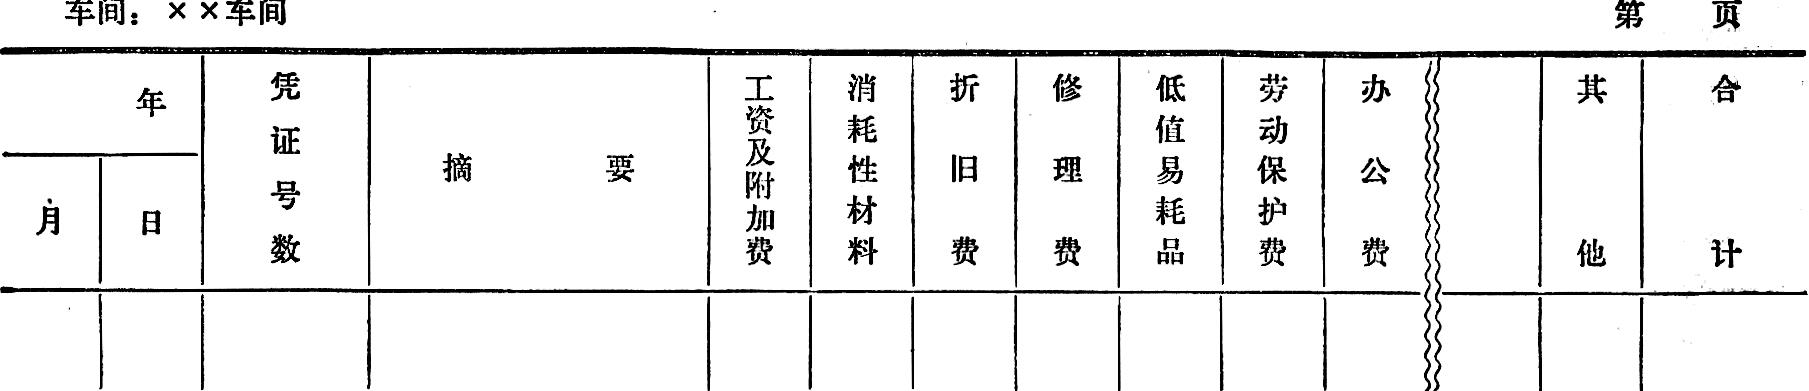 车间：××车间 第 页
年
月 日
凭证号数
摘 要
工资及附加费
消耗性材料
折旧费
修理费
低值易耗品
劳动保护费
办公费
其他
合计